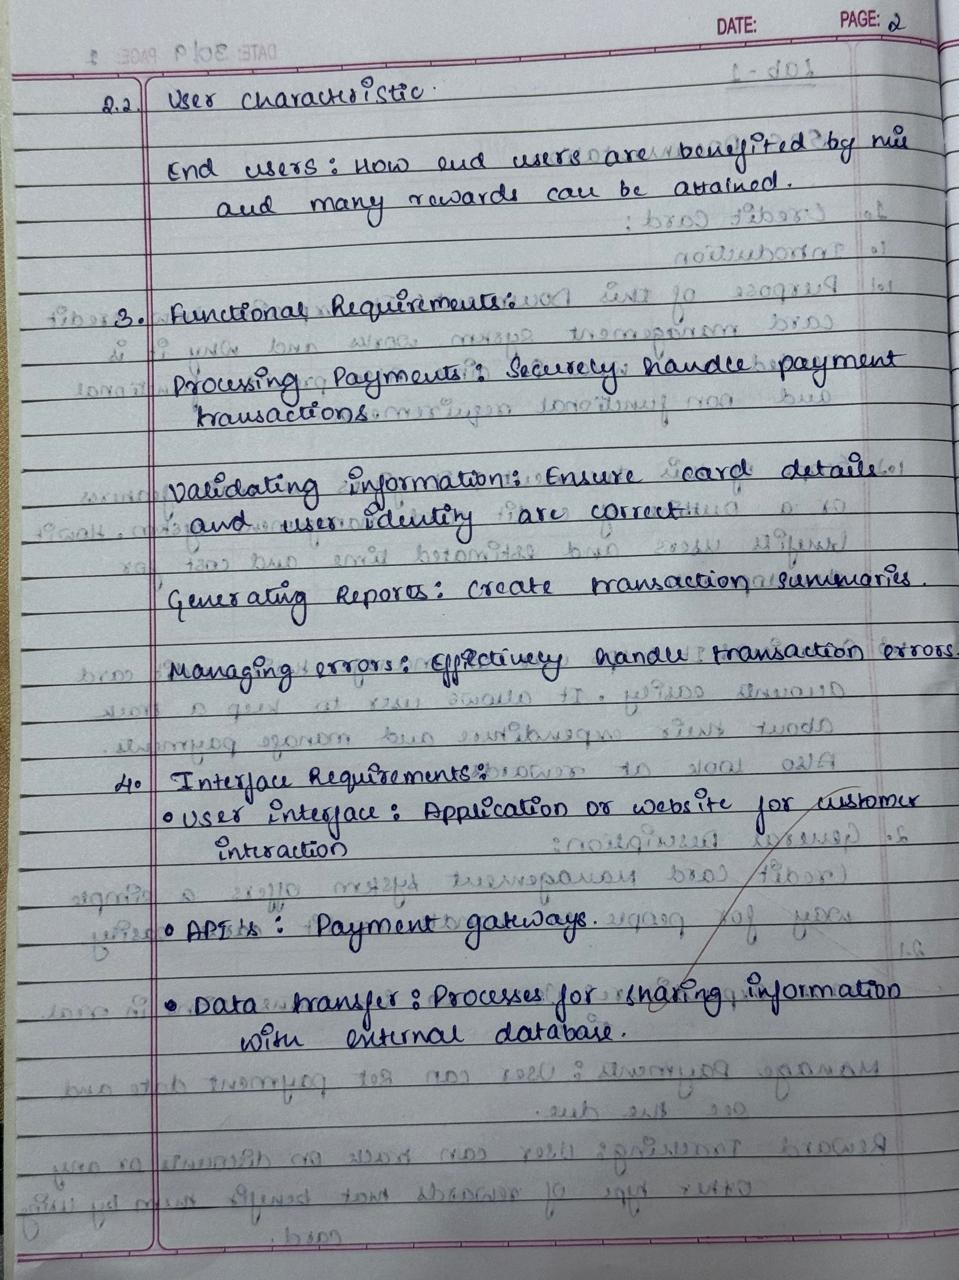 DATE: PAGE: 2
2.2. User characteristic.
End users: How end users are benefited by this
and many rewards can be attained.
3. Functional Requirements:
Processing Payments: Securely handle payment
transactions.
Validating information: Ensure card details
and user identity are correct
Generating Reports: Create transaction summaries.
Managing errors: Effectively handle transaction errors.
4. Interface Requirements:
• User interface: Application or website for customer
intraction
• API's: Payment gateways.
• Data transfer: Processes for sharing information
with external database.